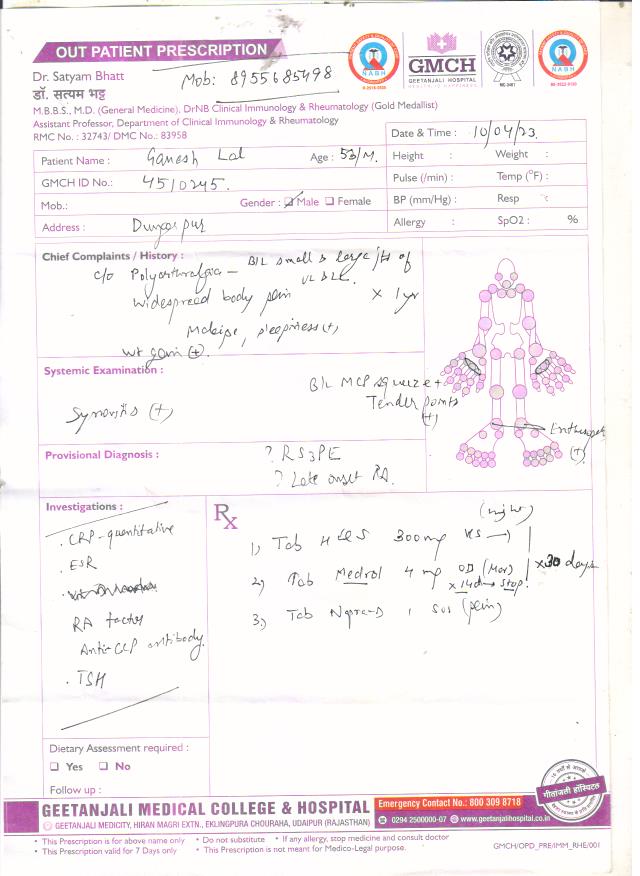 OUT PATIENT PRESCRIPTION
Dr. Satyam Bhatt
Mob: 8955685498
डॉ. सत्यम भट्ट
NABH
GMCH
GEETANJALI HOSPITAL
NABH
M.B.B.S., M.D. (General Medicine), DrNB Clinical Immunology & Rheumatology (Gold Medallist)
Assistant Professor, Department of Clinical Immunology & Rheumatology
RMC No. : 32743/ DMC No.: 83958
Date & Time : 10/04/23.
Patient Name : Ganesh Lal Age : 53/M.
Height : Weight :
GMCH ID No.: 4510245.
Pulse (/min) : Temp (°F) :
Mob.: Gender : Male Female
BP (mm/Hg) : Resp :
Address : Dungarpur
Allergy : SpO2 : %
Chief Complaints / History :
B/L small & large jts of
c/o Polyarthralgia – UL & LL.
Widespread body pain x 1yr
Malaise, sleepiness (+)
wt gain (+).
Systemic Examination :
B/L MCP squeeze +
Tender points
(+)
Synovitis (+)
Enthesopathy
(+).
Provisional Diagnosis :
? RS3PE
? Late onset RA.
Investigations :
Rx
(night)
. CRP-quantitative
1) Tab HCQS 300mg HS →)
. ESR
2) Tab Medrol 4 mg OD (Mor)
x 14d → Stop.
x 30 days
RA factor
3) Tab 1 SOS (pain)
Anti-CCP antibody.
. TSH
Dietary Assessment required :
Yes No
Follow up :
गीतांजली हॉस्पिटल
GEETANJALI MEDICAL COLLEGE & HOSPITAL
Emergency Contact No.: 800 309 8718
GEETANJALI MEDICITY, HIRAN MAGRI EXTN., EKLINGPURA CHOURAHA, UDAIPUR (RAJASTHAN)
0294 2500000-07 www.geetanjalihospital.co.in
• This Prescription is for above name only • Do not substitute • If any allergy, stop medicine and consult doctor
• This Prescription valid for 7 Days only • This Prescription is not meant for Medico-Legal purpose.
GMCH/OPD_PRE/IMM_RHE/001